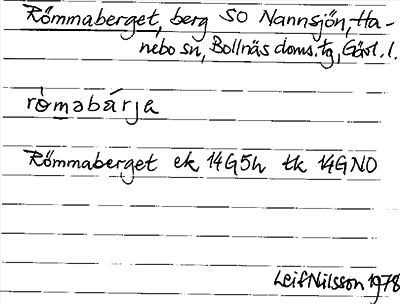 Römmaberget, berg SO Nannsjön, Ha-
nebo sn, Bollnäs doms. tg, Gävl. l.
ròmabárja
Römmaberget ek 14G5h tk 14GNO
Leif Nilsson 1978